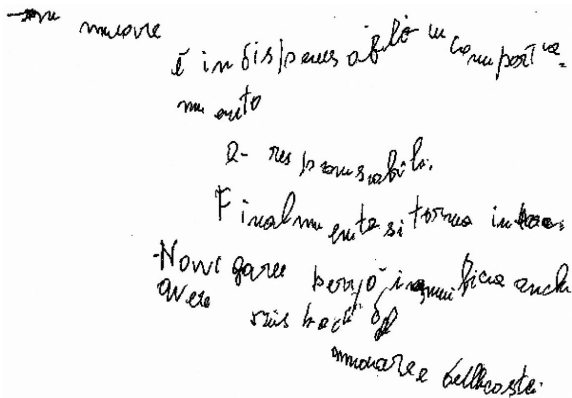 muovre
è indispensabile un comporta-
mento
e responsabile.
Finalmente si torna in
Navigare però significa anche
avere rispetto del
mare e delle coste.